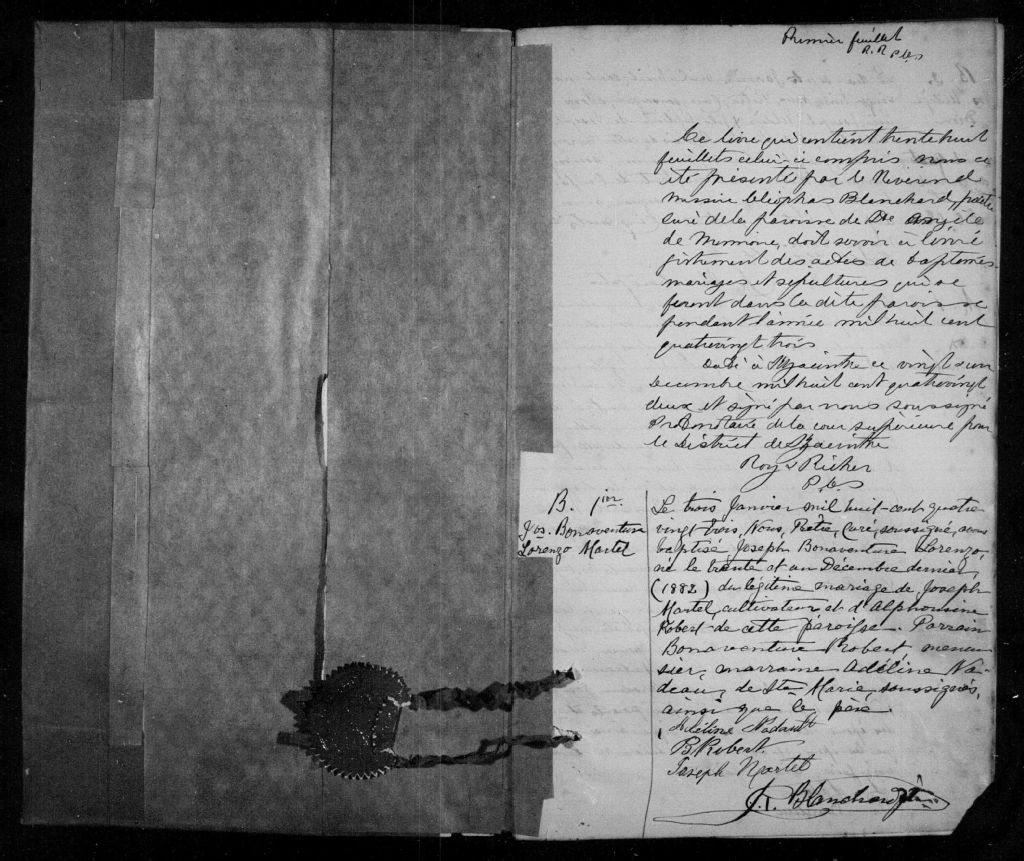 Premier feuillet
R. R. P.C.S
Ce livre qui contient trente huit
feuillets celui-ci compris nous a
été présenté par le Révérend
Messire Cléophas Blanchard, prêtre
curé de la paroisse de Ste Angèle
de Monnoir, doit servir à l'enré
gistrement des actes de baptêmes
mariages et sépultures qui se
feront dans la dite paroisse
pendant l'année mil huit cent
quatrevingt trois
Daté à St Hyacinthe ce vingt sun
Décembre mil huit cent quatrevingt
deux et signé par nous soussigné
Protonotaire de la cour supérieure pour
le District de St Hyacinthe
Roy & Richer
P.C.S
B. 1ier
Jos. Bonaventure
Lorenzo Martel
Le trois Janvier mil huit-cent quatre
vingt trois, Nous, Prêtre, Curé, soussigné, avons
baptisé Joseph Bonaventure Lorenzo,
né le trente et un Décembre dernier,
(1882) du légitime mariage de Joseph
Martel, cultivateur et d'Alphonsine
Robert de cette paroisse. Parrain
Bonaventure Robert, menui
sier, marraine Adéline Na-
deau, de Ste Marie, soussignés,
ainsi que le père.
Adéline Nadault
B. Robert
Joseph Martel
J. C. Blanchard Ptre